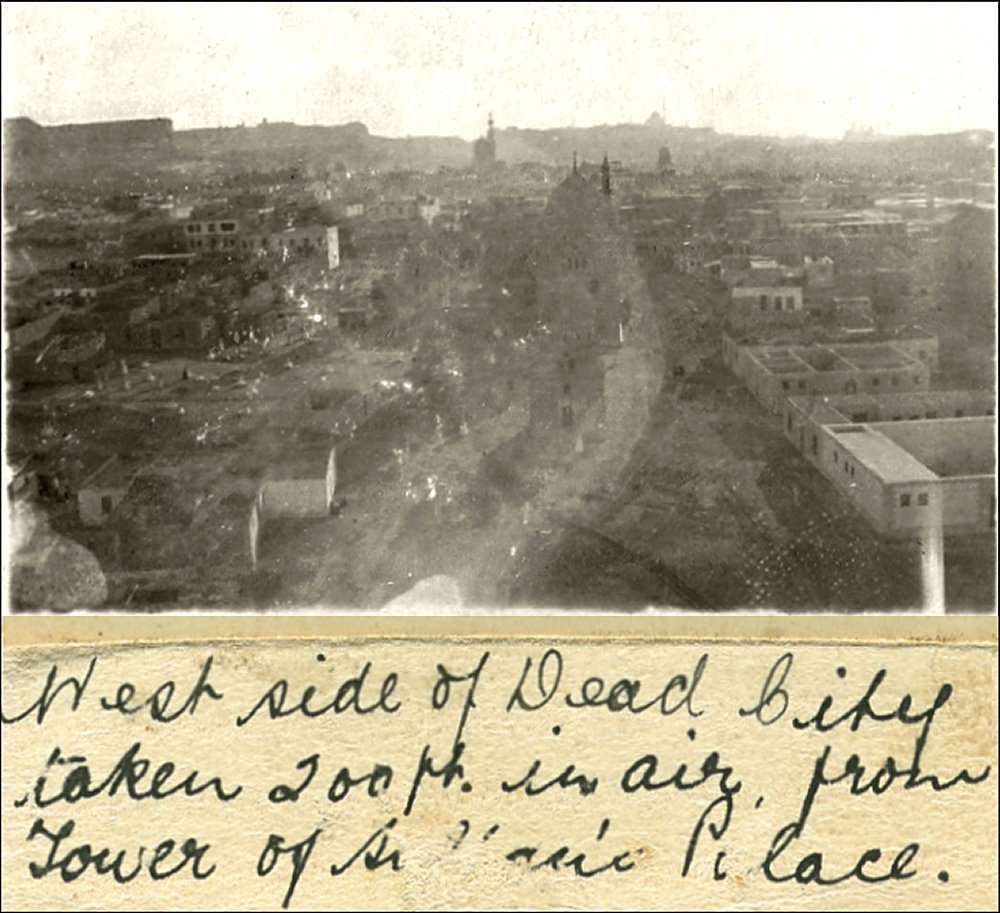 West side of Dead City
taken 200 ft. in air, from
Tower of Palace.